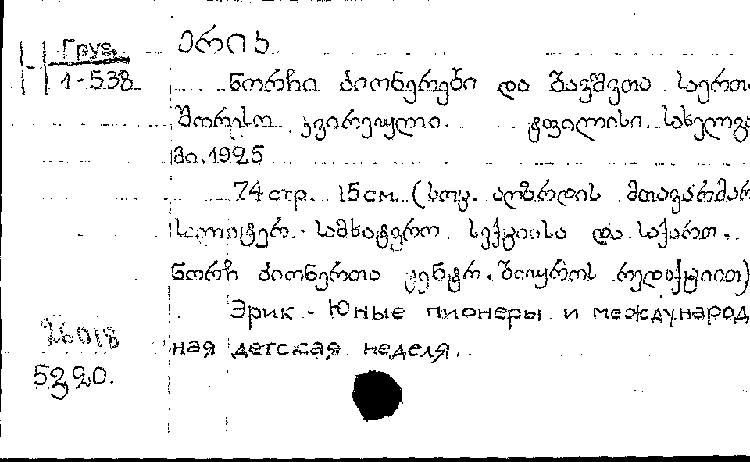 Груз. ერიკ
1-538 ნორჩი პიონერები და ბავშვთა საერთა
შორისო კვირეული. ტფილისი. სახელგა
მი. 1925
74 стр. 15 см. (სოც. აღზრდის მთავარმარ
სალიტერ. სამხატვრო სექციისა და საქართ.
ნორჩ პიონერთა ცენტრ. ბიუროს რედაქციით)
Эрик - Юные пионеры и международ
ная детская неделя.
26018
5220.